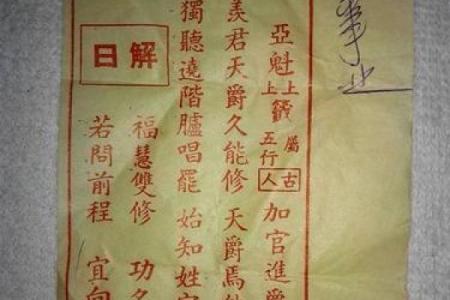 事业
亞魁 上上 籤 屬五行 古人 加官進爵
羨君天爵久能修 天爵焉
獨聽遶階臚唱罷 始知姓字
解曰
福慧雙修 功名
若問前程 宜向